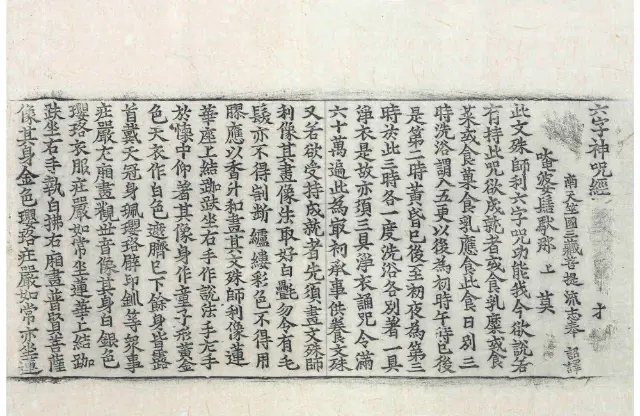 六字神呪經 才
南天竺國三藏菩提流志奉 詔譯
唵婆髻馱那 上 莫
此文殊師利六字呪功能我今欲說若
有持此呪欲成就者或食乳糜或食
菜或食菓食乳應食此食日別三
時洗浴謂入五更以後為初時午時已後
是第二時黃昏已後至初夜為第三
時於此三時各一度洗浴各別著一具
淨衣是故亦須三具淨衣誦呪令滿
六十萬遍此為最初承事供養文殊
又若欲受持成就者先須畫文殊師
利像其畫像法取好白㲲勿令有毛
髮亦不得割斷 縷彩色不得用
膠應以香汁和畫其文殊師利像蓮
華座上結跏趺坐右手作說法手左手
於懷中仰著其像身作童子形黃金
色天衣作白色遮臍已下餘身皆露
首戴天冠身珮瓔珞臂印釧等眾事
莊嚴左廂畫觀世音像其身白銀色
瓔珞衣服莊嚴如常坐蓮華上結跏
趺坐右手執白拂右廂畫普賢菩薩
像其身金色瓔珞莊嚴如常亦坐蓮